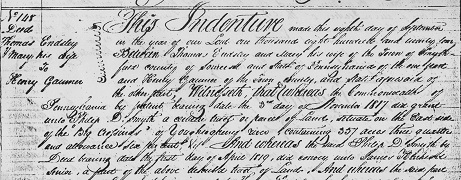 No 148
Deed
Thomas Endsley
& Mary his wife
To
Henry Gaumer
This Indenture made this eighth day of September
in the year of our Lord one thousand eight hundred and
Between Thomas Endsley and Mary his wife of the Town of
County of Somerset and State of Pennsylvania of the one part
and Henry Gaumer of the Town County and State aforesaid of
the other part, Witnesseth, that whereas the Commonwealth of
Pennsylvania by patent bearing date the 3d day of November 1817 did grant
unto Philip D. Smyth a certain tract or parcel of Land, situate on the East side
of the "Big Crossings" of Youghiogheny river (containing 337 acres three quarters
and allowance six per cent &c). And whereas the said Philip D. Smyth by
Deed bearing date the first day of April 1819, did convey unto James
Senior, a part of the above described tract of Land, And whereas the said part